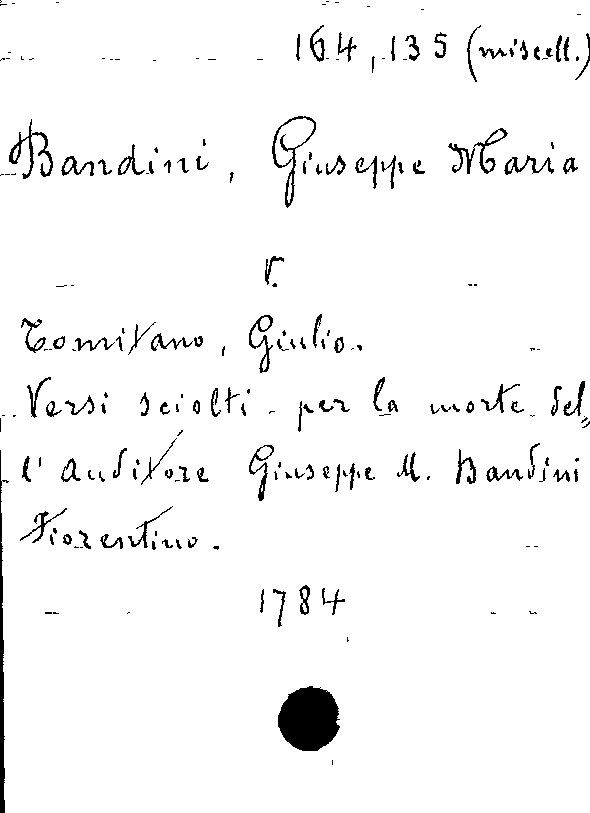 164,135 (miscell.)
Bandini, Giuseppe Maria
v.
Tomitano, Giulio.
Versi sciolti per la morte del,,
l'Auditore Giuseppe M. Bandini
Fiorentino.
1784